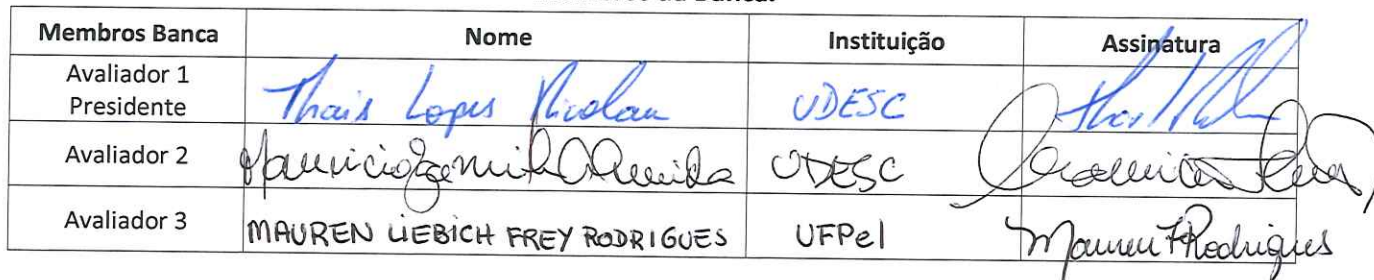 Membros Banca Nome Instituição Assinatura
Avaliador 1 Presidente Thais Lopes Nicolau UDESC
Avaliador 2 Mauricio Almeida UDESC
Avaliador 3 MAUREN LIEBICH FREY RODRIGUES UFPel Mauren F Rodrigues